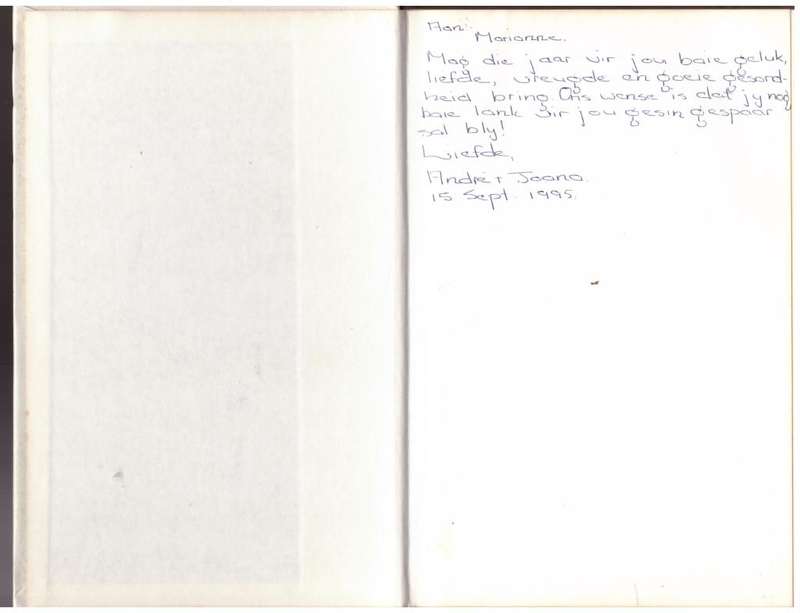 Aan:
Marianne.
Mag die jaar vir jou baie geluk,
liefde, vreugde en goeie gesond-
heid bring. Ons wense is dat jy nog
baie lank vir jou gesin gespaar
sal bly!
Liefde,
André + Joana.
15 Sept. 1995.